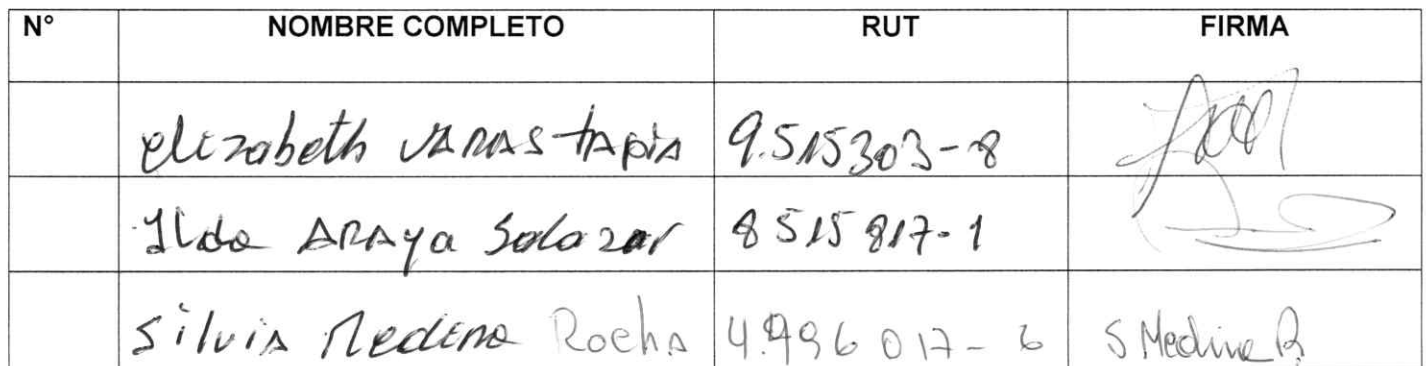 N° NOMBRE COMPLETO RUT FIRMA
elizabeth VARAS tApiA 9.515303-8
Ilda ARAya Salazar 8515817-1
SilviA Medina RochA 4.996017-6 S Medina R